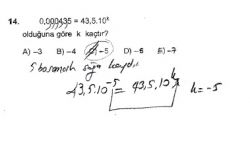 14. 0,000435 = 43,5.10ᵏ
olduğuna göre k kaçtır?
A) -3 B) -4 C) -5 D) -6 E) -7
5 basamak sağa kaydır
43,5.10⁻⁵ = 43,5.10ᵏ k=-5